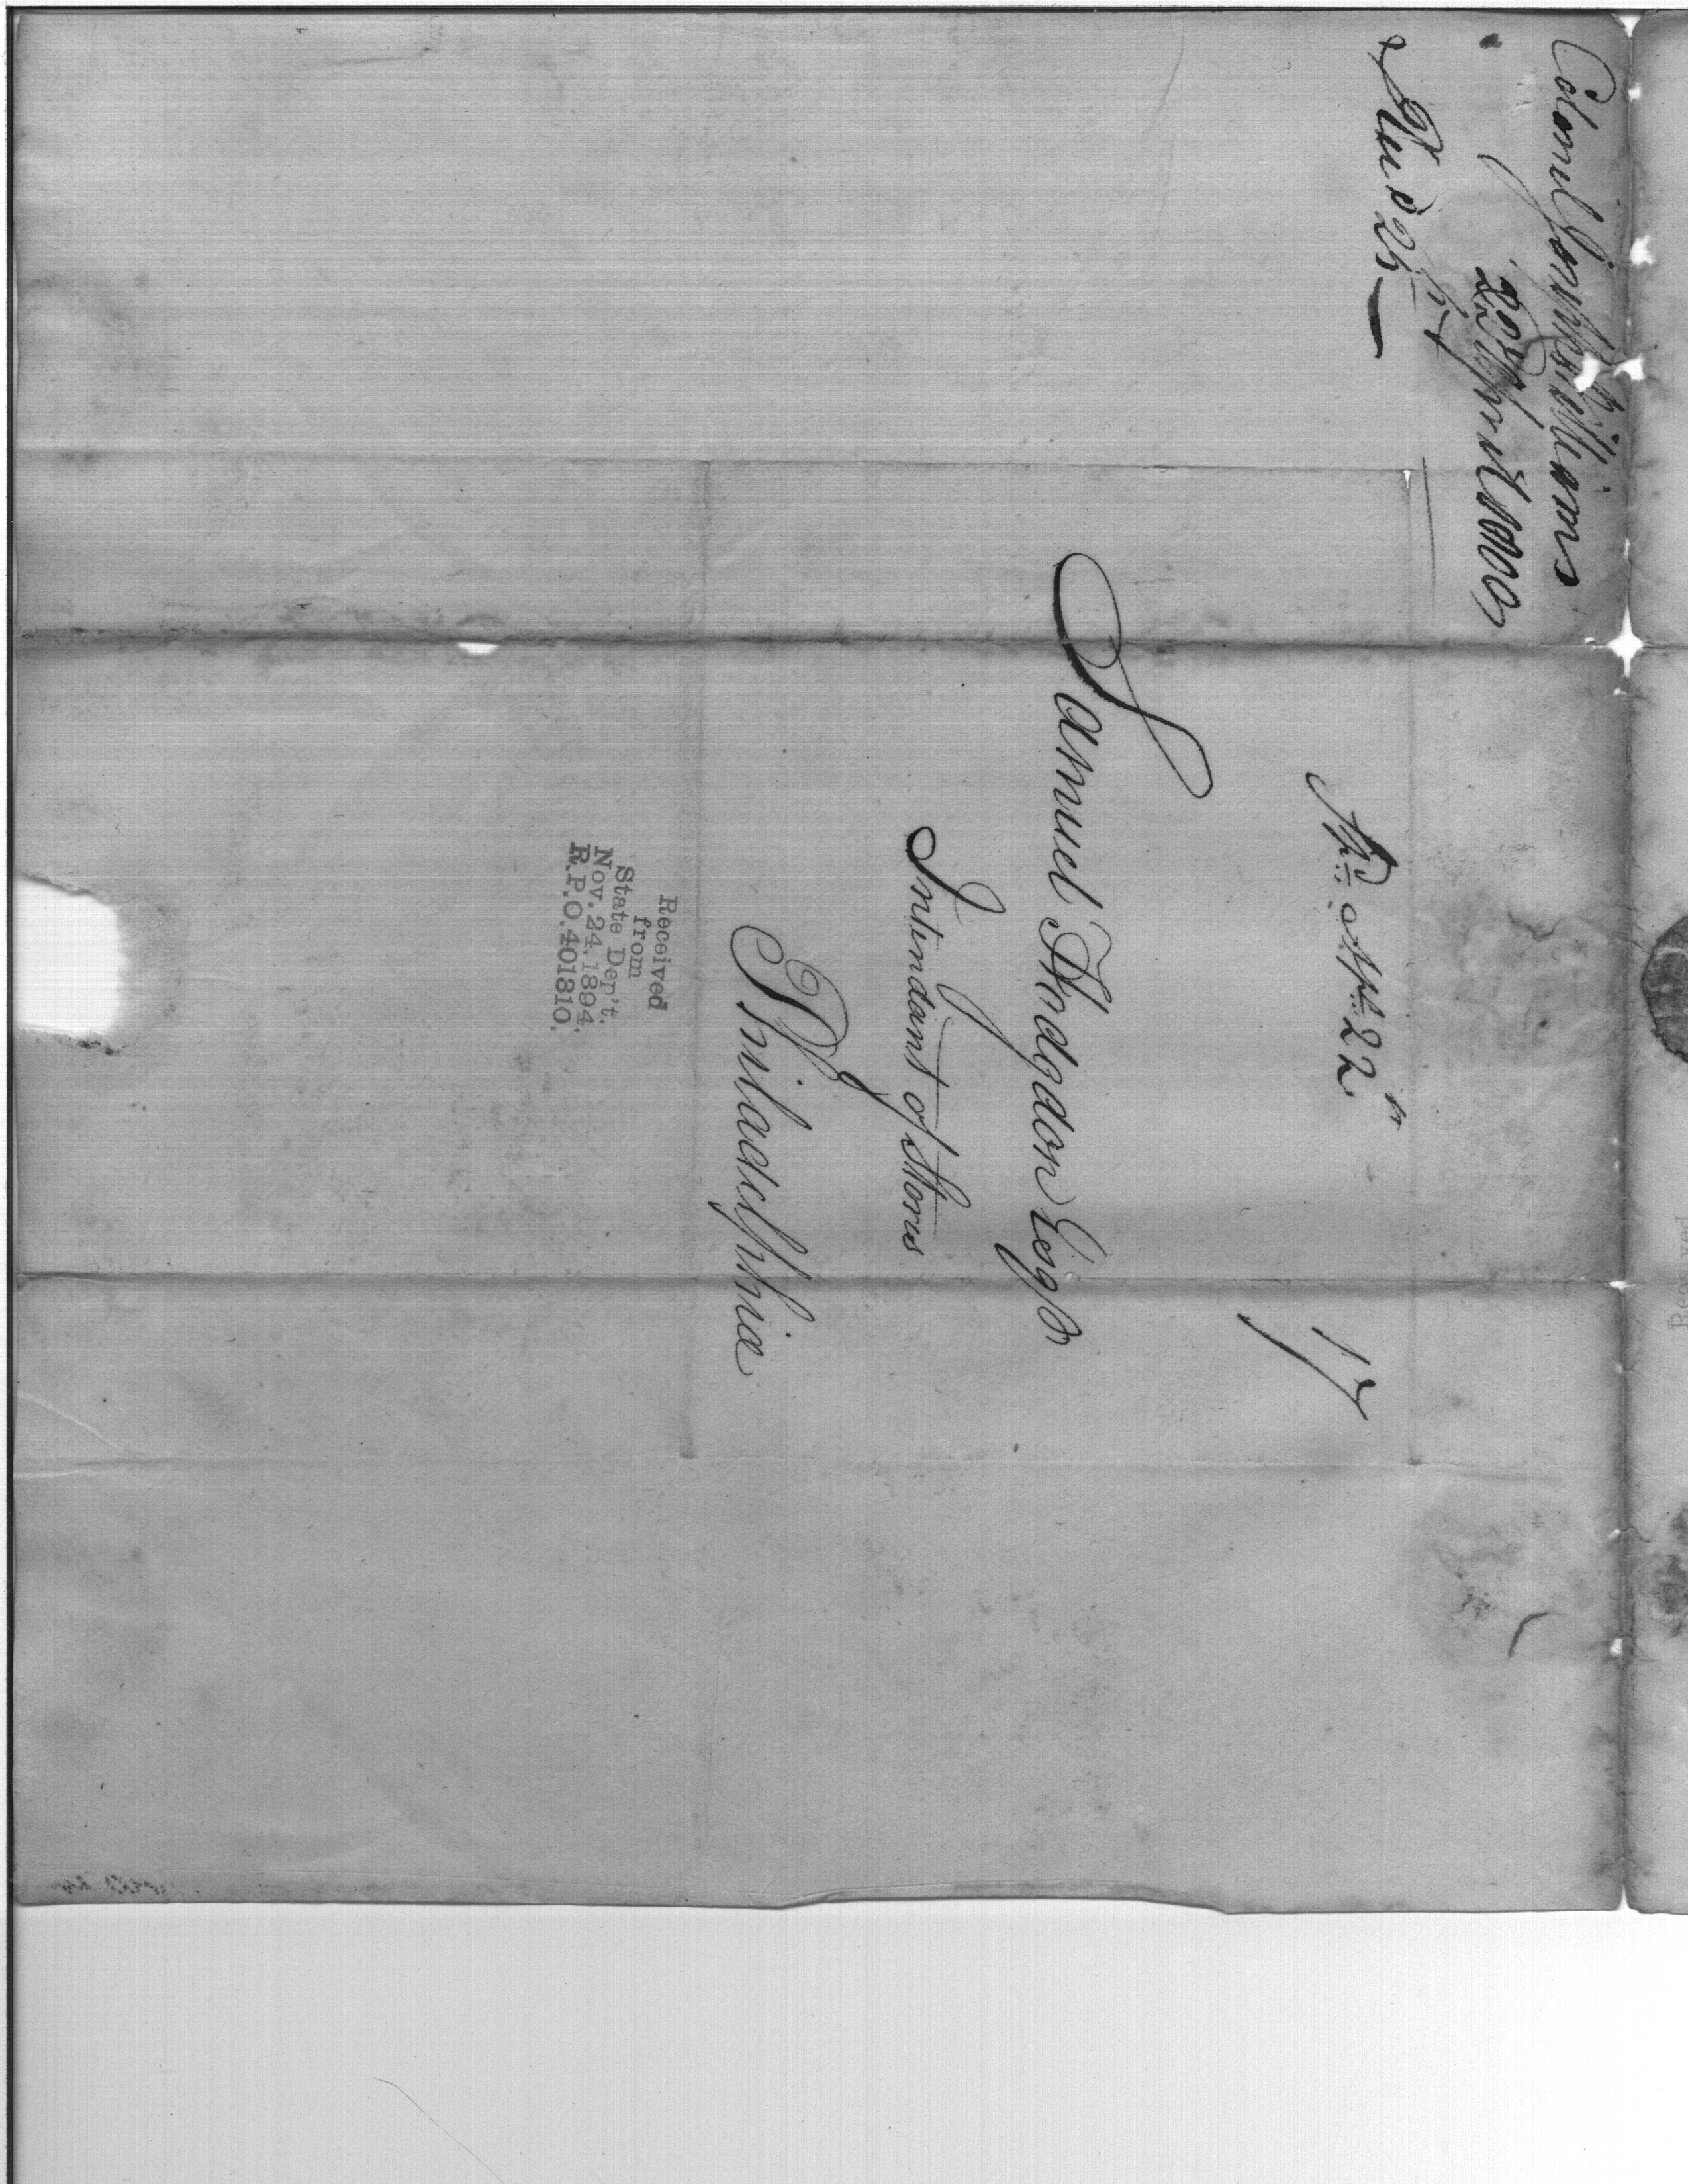 Colonel Jonathn Williams
20th April 1800
Recd 25th
Apl. 22n
17
Samuel Hodgdon Esqr
Intendant of Stores
Philadelphia
Received
from
State Dep't.
Nov. 24, 1894.
R.P.O. 401310.